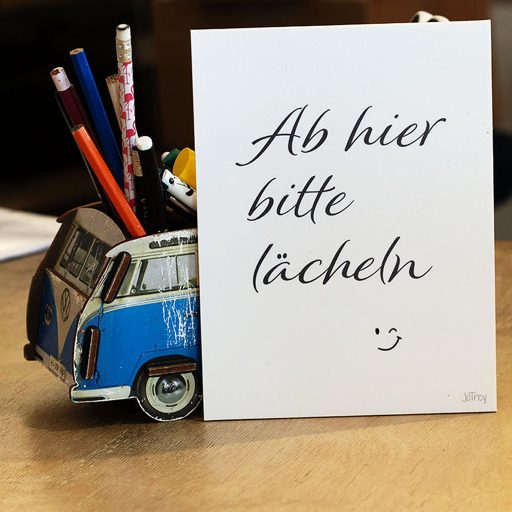 Ab hier
bitte
lächeln
JoTroy